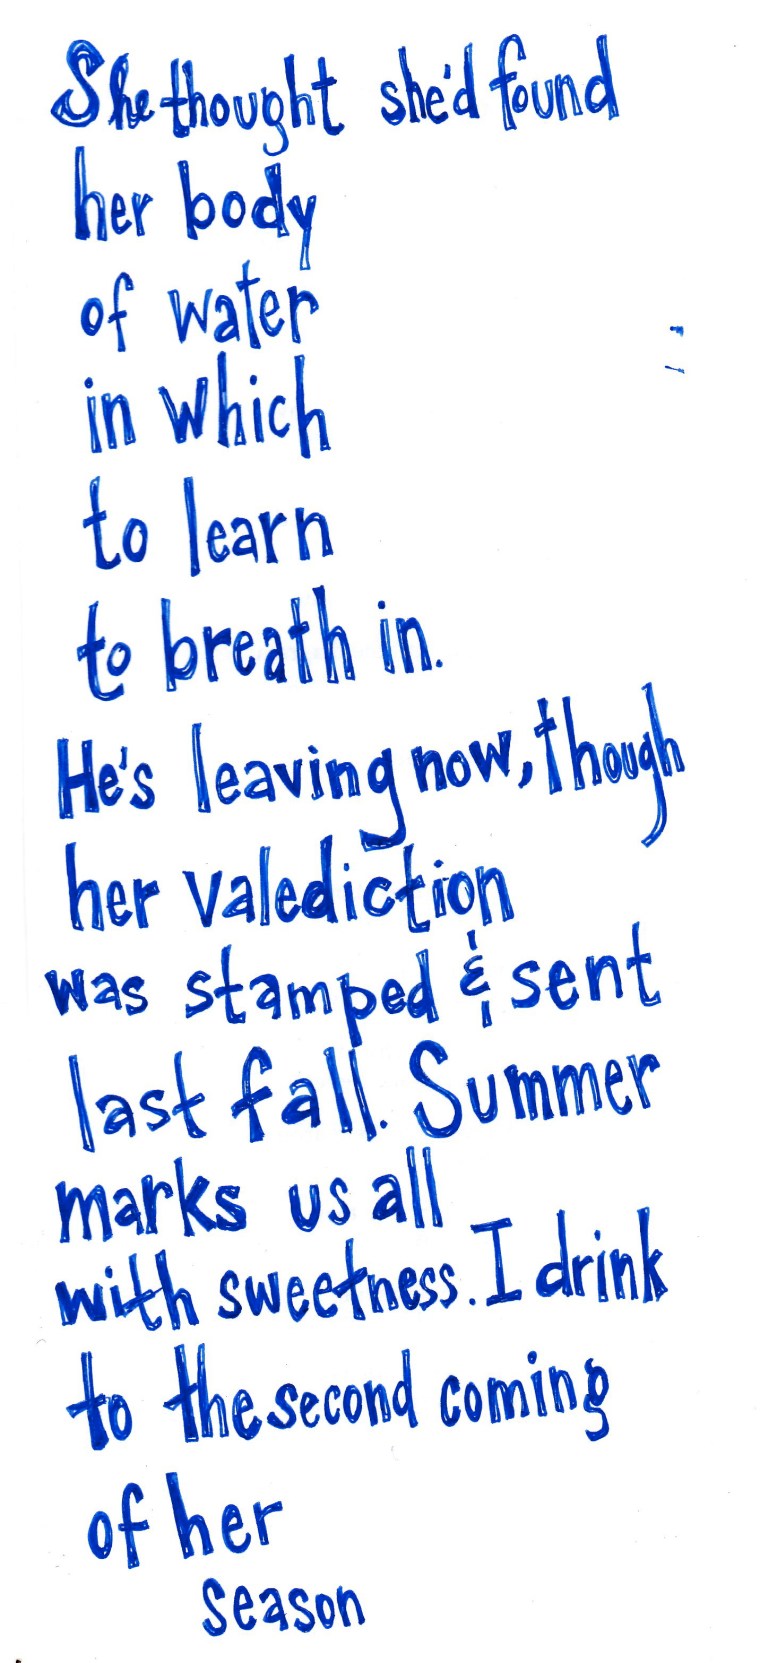 She thought she'd found
her body
of water
in which
to learn
to breath in.
He's leaving now, though
her valediction
was stamped & sent
last fall. Summer
marks us all
with sweetness. I drink
to the second coming
of her
season